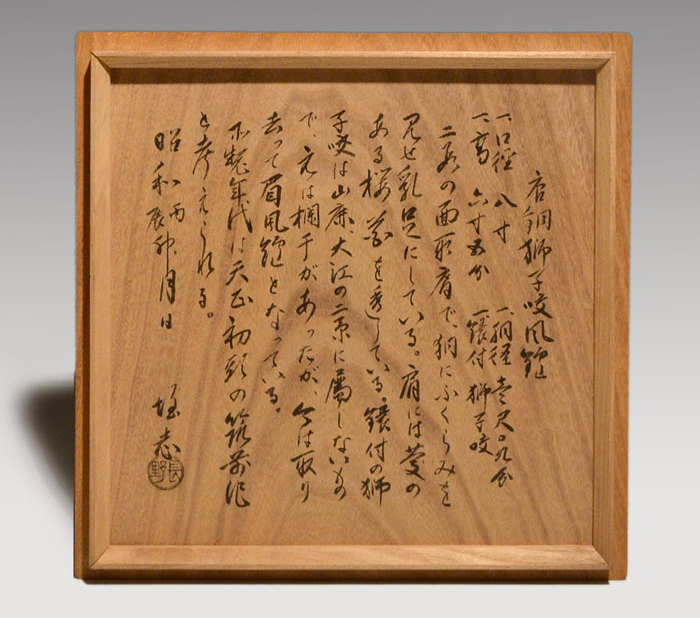 唐銅獅子咬風鑪
一、口径 八寸 一、胴径 壱尺〇九分
一、高 六寸五分 一、鐶付 獅子咬
二段の面取肩で、胴にふくらみを
見せ乳足にしている。肩には菱の
ある を透している。鐶付の獅
子咬は山 、大江の二系に属しないもの
で、元は欄干があったが、今は取り
去って眉風鑪となっている。
年代は天正初頭の筑前作
と考えられる。
昭和丙辰卯月日
垤志
長野